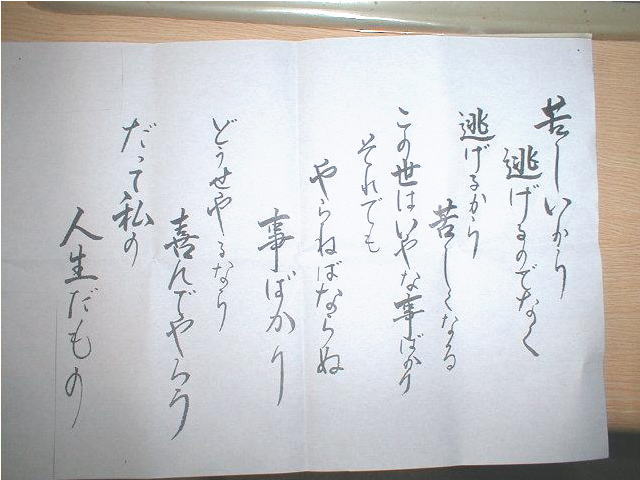 苦しいから
逃げるのでなく
逃げるから
苦しくなる
この世はいやな事ばかり
それでも
やらねばならぬ
事ばかり
どうせやるなら
喜んでやらう
だって私の
人生だもの